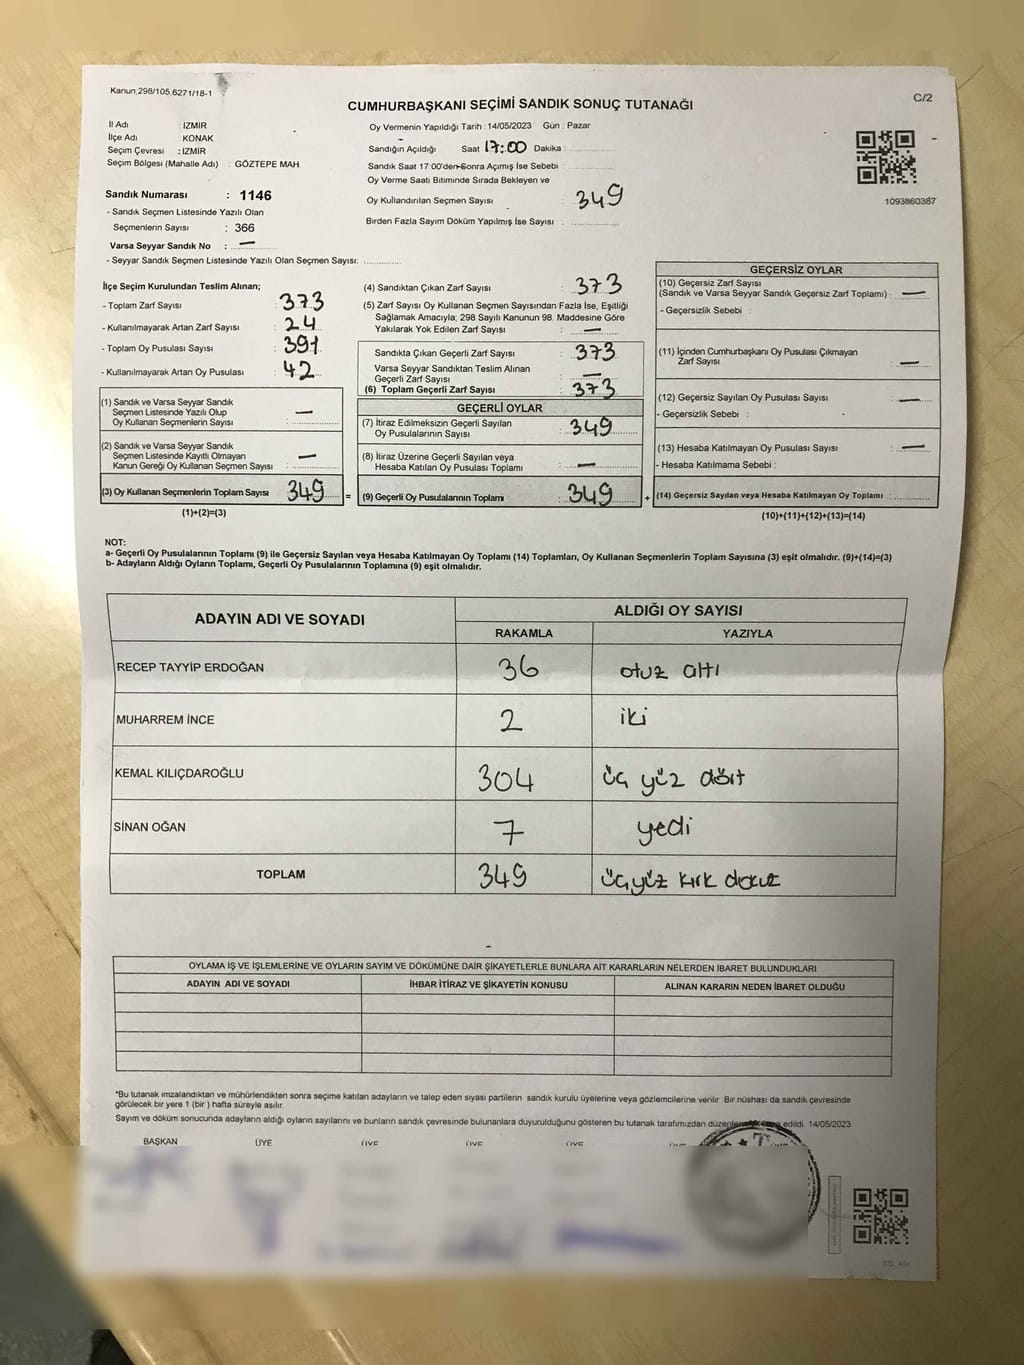 Kanun,298/105,6271/18-1
C/2
CUMHURBAŞKANI SEÇİMİ SANDIK SONUÇ TUTANAĞI
İl Adı : İZMİR
İlçe Adı : KONAK
Seçim Çevresi : İZMİR
Seçim Bölgesi (Mahalle Adı) : GÖZTEPE MAH.
Oy Vermenin Yapıldığı Tarih : 14/05/2023 Gün : Pazar
Sandığın Açıldığı Saat 17:00 Dakika :
Sandık Saat 17:00'den Sonra Açımış İse Sebebi :
Oy Verme Saati Bitiminde Sırada Bekleyen ve
Oy Kullandırılan Seçmen Sayısı : 349
Birden Fazla Sayım Döküm Yapılmış İse Sayısı :
1093860387
Sandık Numarası : 1146
- Sandık Seçmen Listesinde Yazılı Olan
Seçmenlerin Sayısı : 366
Varsa Seyyar Sandık No : —
- Seyyar Sandık Seçmen Listesinde Yazılı Olan Seçmen Sayısı:
İlçe Seçim Kurulundan Teslim Alınan;
- Toplam Zarf Sayısı : 373
- Kullanılmayarak Artan Zarf Sayısı : 24
- Toplam Oy Pusulası Sayısı : 391
- Kullanılmayarak Artan Oy Pusulası : 42
(1) Sandık ve Varsa Seyyar Sandık
Seçmen Listesinde Yazılı Olup
Oy Kullanan Seçmenlerin Sayısı : —
(2) Sandık ve Varsa Seyyar Sandık
Seçmen Listesinde Kayıtlı Olmayan
Kanun Gereği Oy Kullanan Seçmen Sayısı : —
(3) Oy Kullanan Seçmenlerin Toplam Sayısı 349 =
(1)+(2)=(3)
(4) Sandıktan Çıkan Zarf Sayısı : 373
(5) Zarf Sayısı Oy Kullanan Seçmen Sayısından Fazla İse, Eşitliği
Sağlamak Amacıyla; 298 Sayılı Kanunun 98. Maddesine Göre
Yakılarak Yok Edilen Zarf Sayısı : —
Sandıkta Çıkan Geçerli Zarf Sayısı : 373
Varsa Seyyar Sandıktan Teslim Alınan
Geçerli Zarf Sayısı : —
(6) Toplam Geçerli Zarf Sayısı : 373
GEÇERLİ OYLAR
(7) İtiraz Edilmeksizin Geçerli Sayılan
Oy Pusulalarının Sayısı : 349
(8) İtiraz Üzerine Geçerli Sayılan veya
Hesaba Katılan Oy Pusulası Toplamı : —
(9) Geçerli Oy Pusulalarının Toplamı : 349 +
GEÇERSİZ OYLAR
(10) Geçersiz Zarf Sayısı
(Sandık ve Varsa Seyyar Sandık Geçersiz Zarf Toplamı) : —
- Geçersizlik Sebebi :
(11) İçinden Cumhurbaşkanı Oy Pusulası Çıkmayan
Zarf Sayısı : —
(12) Geçersiz Sayılan Oy Pusulası Sayısı : —
- Geçersizlik Sebebi :
(13) Hesaba Katılmayan Oy Pusulası Sayısı : —
- Hesaba Katılmama Sebebi :
(14) Geçersiz Sayılan veya Hesaba Katılmayan Oy Toplamı :
(10)+(11)+(12)+(13)=(14)
NOT:
a- Geçerli Oy Pusulalarının Toplamı (9) ile Geçersiz Sayılan veya Hesaba Katılmayan Oy Toplamı (14) Toplamları, Oy Kullanan Seçmenlerin Toplam Sayısına (3) eşit olmalıdır. (9)+(14)=(3)
b- Adayların Aldığı Oyların Toplamı, Geçerli Oy Pusulalarının Toplamına (9) eşit olmalıdır.
ADAYIN ADI VE SOYADI
ALDIĞI OY SAYISI
RAKAMLA YAZIYLA
RECEP TAYYİP ERDOĞAN 36 otuz altı
MUHARREM İNCE 2 iki
KEMAL KILIÇDAROĞLU 304 üç yüz dört
SİNAN OĞAN 7 yedi
TOPLAM 349 üçyüz kırk dokuz
OYLAMA İŞ VE İŞLEMLERİNE VE OYLARIN SAYIM VE DÖKÜMÜNE DAİR ŞİKAYETLERLE BUNLARA AİT KARARLARIN NELERDEN İBARET BULUNDUKLARI
ADAYIN ADI VE SOYADI İHBAR İTİRAZ VE ŞİKAYETİN KONUSU ALINAN KARARIN NEDEN İBARET OLDUĞU
*Bu tutanak imzalandıktan ve mühürlendikten sonra seçime katılan adayların ve talep eden siyasi partilerin sandık kurulu üyelerine veya gözlemcilerine verilir. Bir nüshası da sandık çevresinde
görülecek bir yere 1 (bir ) hafta süreyle asılır.
Sayım ve döküm sonucunda adayların aldığı oyların sayılarını ve bunların sandık çevresinde bulunanlara duyurulduğunu gösteren bu tutanak tarafımızdan edildi. 14/05/2023
BAŞKAN ÜYE ÜYE ÜYE ÜYE